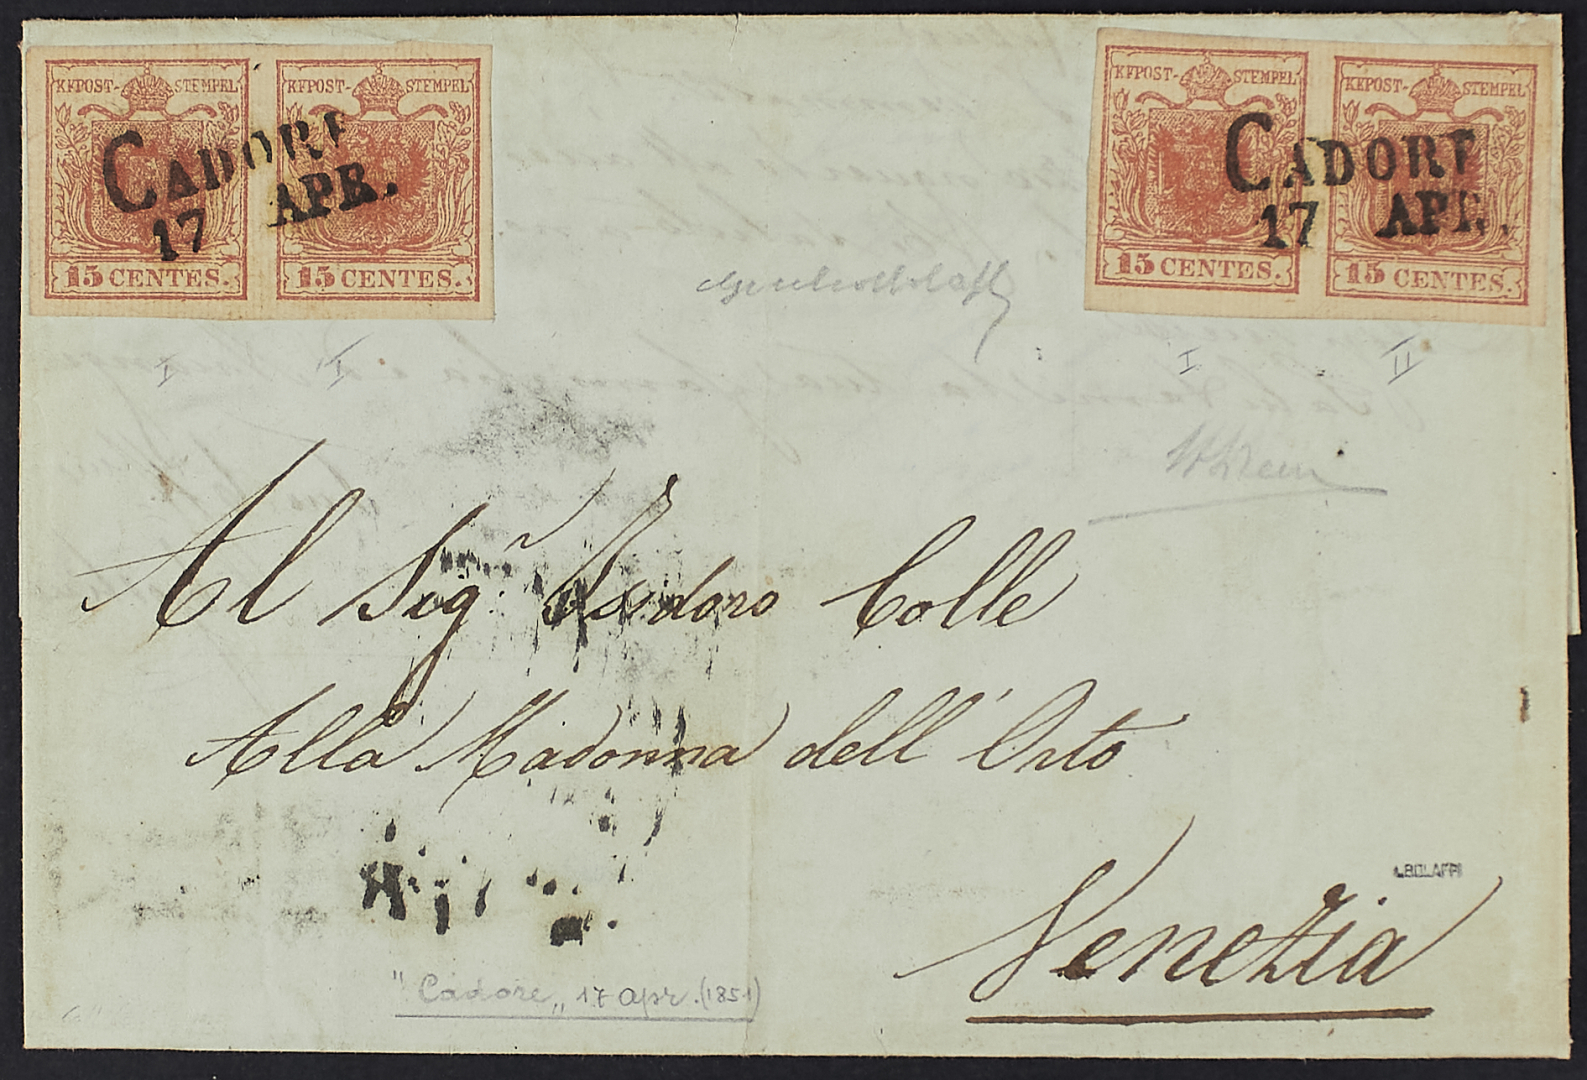 KKPOST- STEMPEL KKPOST- STEMPEL
15 CENTES. 15 CENTES.
CADORE
17 APR.
KKPOST- STEMPEL KKPOST- STEMPEL
15 CENTES. 15 CENTES.
CADORE
17 APR.
I I I II
Al Sigr Isidoro Colle
Alla Madonna dell' Orto
Venezia
A.BOLAFFI
"Cadore„ 17 apr. (1851)